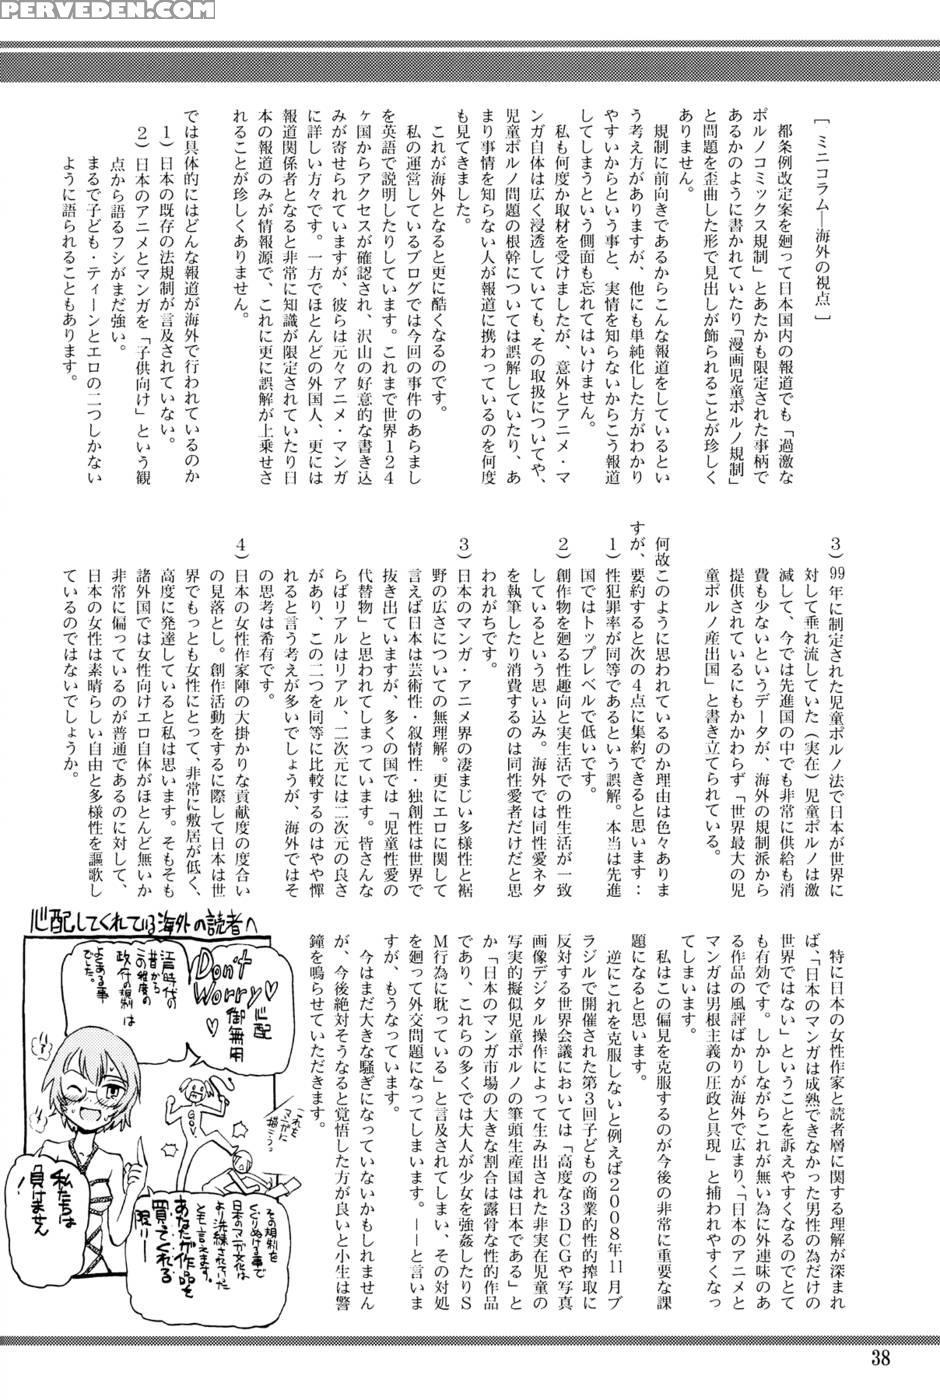 PERVEDEN.COM
[ ミニコラム――海外の視点 ]
都条例改定案を廻って日本国内の報道でも「過激な
ポルノコミックス規制」とあたかも限定された事柄で
あるかのように書かれていたり「漫画児童ポルノ規制」
と問題を歪曲した形で見出しが飾られることが珍しく
ありません。
規制に前向きであるからこんな報道をしているとい
う考え方がありますが、他にも単純化した方がわかり
やすいからという事と、実情を知らないからこう報道
してしまうという側面も忘れてはいけません。
私も何度か取材を受けましたが、意外とアニメ・マ
ンガ自体は広く浸透していても、その取扱についてや、
児童ポルノ問題の根幹については誤解していたり、あ
まり事情を知らない人が報道に携わっているのを何度
も見てきました。
これが海外となると更に酷くなるのです。
私の運営しているブログでは今回の事件のあらまし
を英語で説明したりしています。これまで世界124
ヶ国からアクセスが確認され、沢山の好意的な書き込
みが寄せられていますが、彼らは元々アニメ・マンガ
に詳しい方々です。一方でほとんどの外国人、更には
報道関係者となると非常に知識が限定されていたり日
本の報道のみが情報源で、これに更に誤解が上乗せさ
れることが珍しくありません。
では具体的にはどんな報道が海外で行われているのか
1) 日本の既存の法規制が言及されていない。
2) 日本のアニメとマンガを「子供向け」という観
点から語るフシがまだ強い。
まるで子ども・ティーンとエロの二つしかない
ように語られることもあります。
3) 99年に制定された児童ポルノ法で日本が世界に
対して垂れ流していた(実在)児童ポルノは激
減して、今では先進国の中でも非常に供給も消
費も少ないというデータが、海外の規制派から
提供されているにもかかわらず「世界最大の児
童ポルノ産出国」と書き立てられている。
何故このように思われているのか理由は色々ありま
すが、要約すると次の4点に集約できると思います:
1) 性犯罪率が同等であるという誤解。本当は先進
国ではトップレベルで低いです。
2) 創作物を廻る性趣向と実生活での性生活が一致
しているという思い込み。海外では同性愛ネタ
を執筆したり消費するのは同性愛者だけだと思
われがちです。
3) 日本のマンガ・アニメ界の凄まじい多様性と裾
野の広さについての無理解。更にエロに関して
言えば日本は芸術性・叙情性・独創性は世界で
抜き出ていますが、多くの国では「児童性愛の
代替物」と思われてしまっています。皆さんな
らばリアルはリアル、二次元には二次元の良さ
があり、この二つを同等に比較するのはやや憚
れると言う考えが多いでしょうが、海外ではそ
の思考は希有です。
4) 日本の女性作家陣の大掛かりな貢献度の度合い
の見落とし。創作活動をするに際して日本は世
界でもっとも女性にとって、非常に敷居が低く、
高度に発達していると私は思います。そもそも
諸外国では女性向けエロ自体がほとんど無いか
非常に偏っているのが普通であるのに対して、
日本の女性は素晴らしい自由と多様性を謳歌し
ているのではないでしょうか。
特に日本の女性作家と読者層に関する理解が深まれ
ば、「日本のマンガは成熟できなかった男性の為だけの
世界ではない」ということを訴えやすくなるのでとて
も有効です。しかしながらこれが無い為に外連味のあ
る作品の風評ばかりが海外で広まり、「日本のアニメと
マンガは男根主義の圧政と具現」と捕われやすくなっ
てしまいます。
私はこの偏見を克服するのが今後の非常に重要な課
題になると思います。
逆にこれを克服しないと例えば2008年11月ブ
ラジルで開催された第3回子どもの商業的性的搾取に
反対する世界会議においては「高度な3DCGや写真
画像デジタル操作によって生み出された非実在児童の
写実的擬似児童ポルノの筆頭生産国は日本である」と
か「日本のマンガ市場の大きな割合は露骨な性的作品
であり、これらの多くでは大人が少女を強姦したりS
M行為に耽っている」と言及されてしまい、その対処
を廻って外交問題になってしまいます。――と言いま
すが、もうなっています。
今はまだ大きな騒ぎになっていないかもしれません
が、今後絶対そうなると覚悟した方が良いと小生は警
鐘を鳴らせていただきます。
心配してくれている海外の読者へ
Don't
Worry♡
心配
御無用
♡
江戸時代の
昔から
この程度の
政府の規制は
よくある事
でした。
GOV.
これを
マンガに
描こう。
その規制を
くぐりぬける事で
日本のマンガ文化は
より洗練されていた
とも言えます。
あなたが作品を
買ってくれる
限り―
私たちは
負けません
!
38